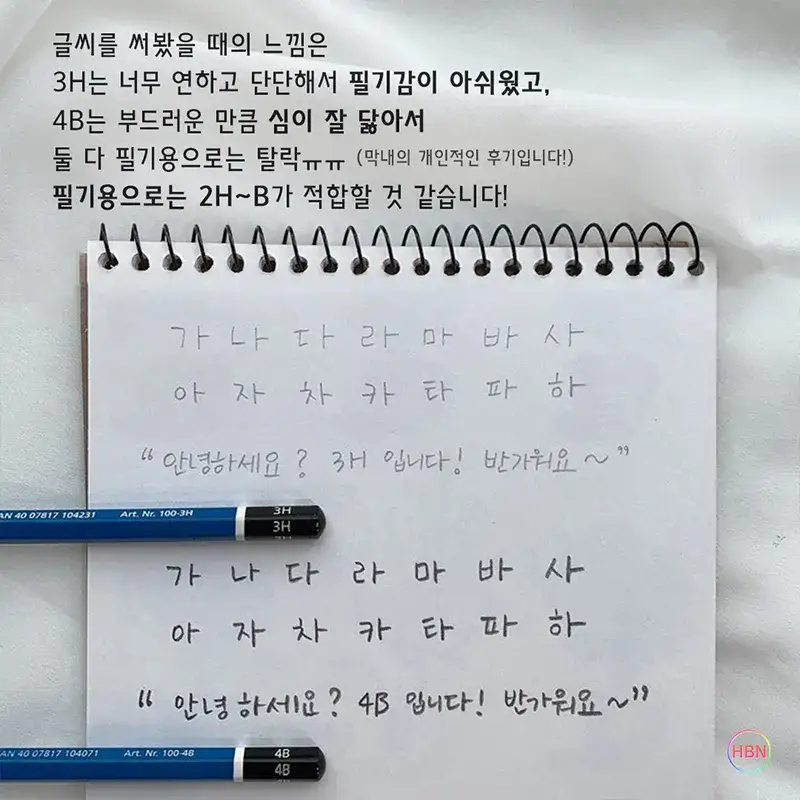 글씨를 써봤을 때의 느낌은
3H는 너무 연하고 단단해서 필기감이 아쉬웠고,
4B는 부드러운 만큼 심이 잘 닳아서
둘 다 필기용으로는 탈락ㅠㅠ (막내의 개인적인 후기입니다!)
필기용으로는 2H~B가 적합할 것 같습니다!
가 나 다 라 마 바 사
아 자 차 카 타 파 하
“안녕하세요? 3H 입니다! 반가워요~”
AN 40 07817 104231 Art. Nr. 100-3H 3H
3H
가 나 다 라 마 바 사
아 자 차 카 타 파 하
“안녕하세요? 4B 입니다! 반가워요~”
AN 40 07817 104071 Art. Nr. 100-4B 4B
4B
HBN